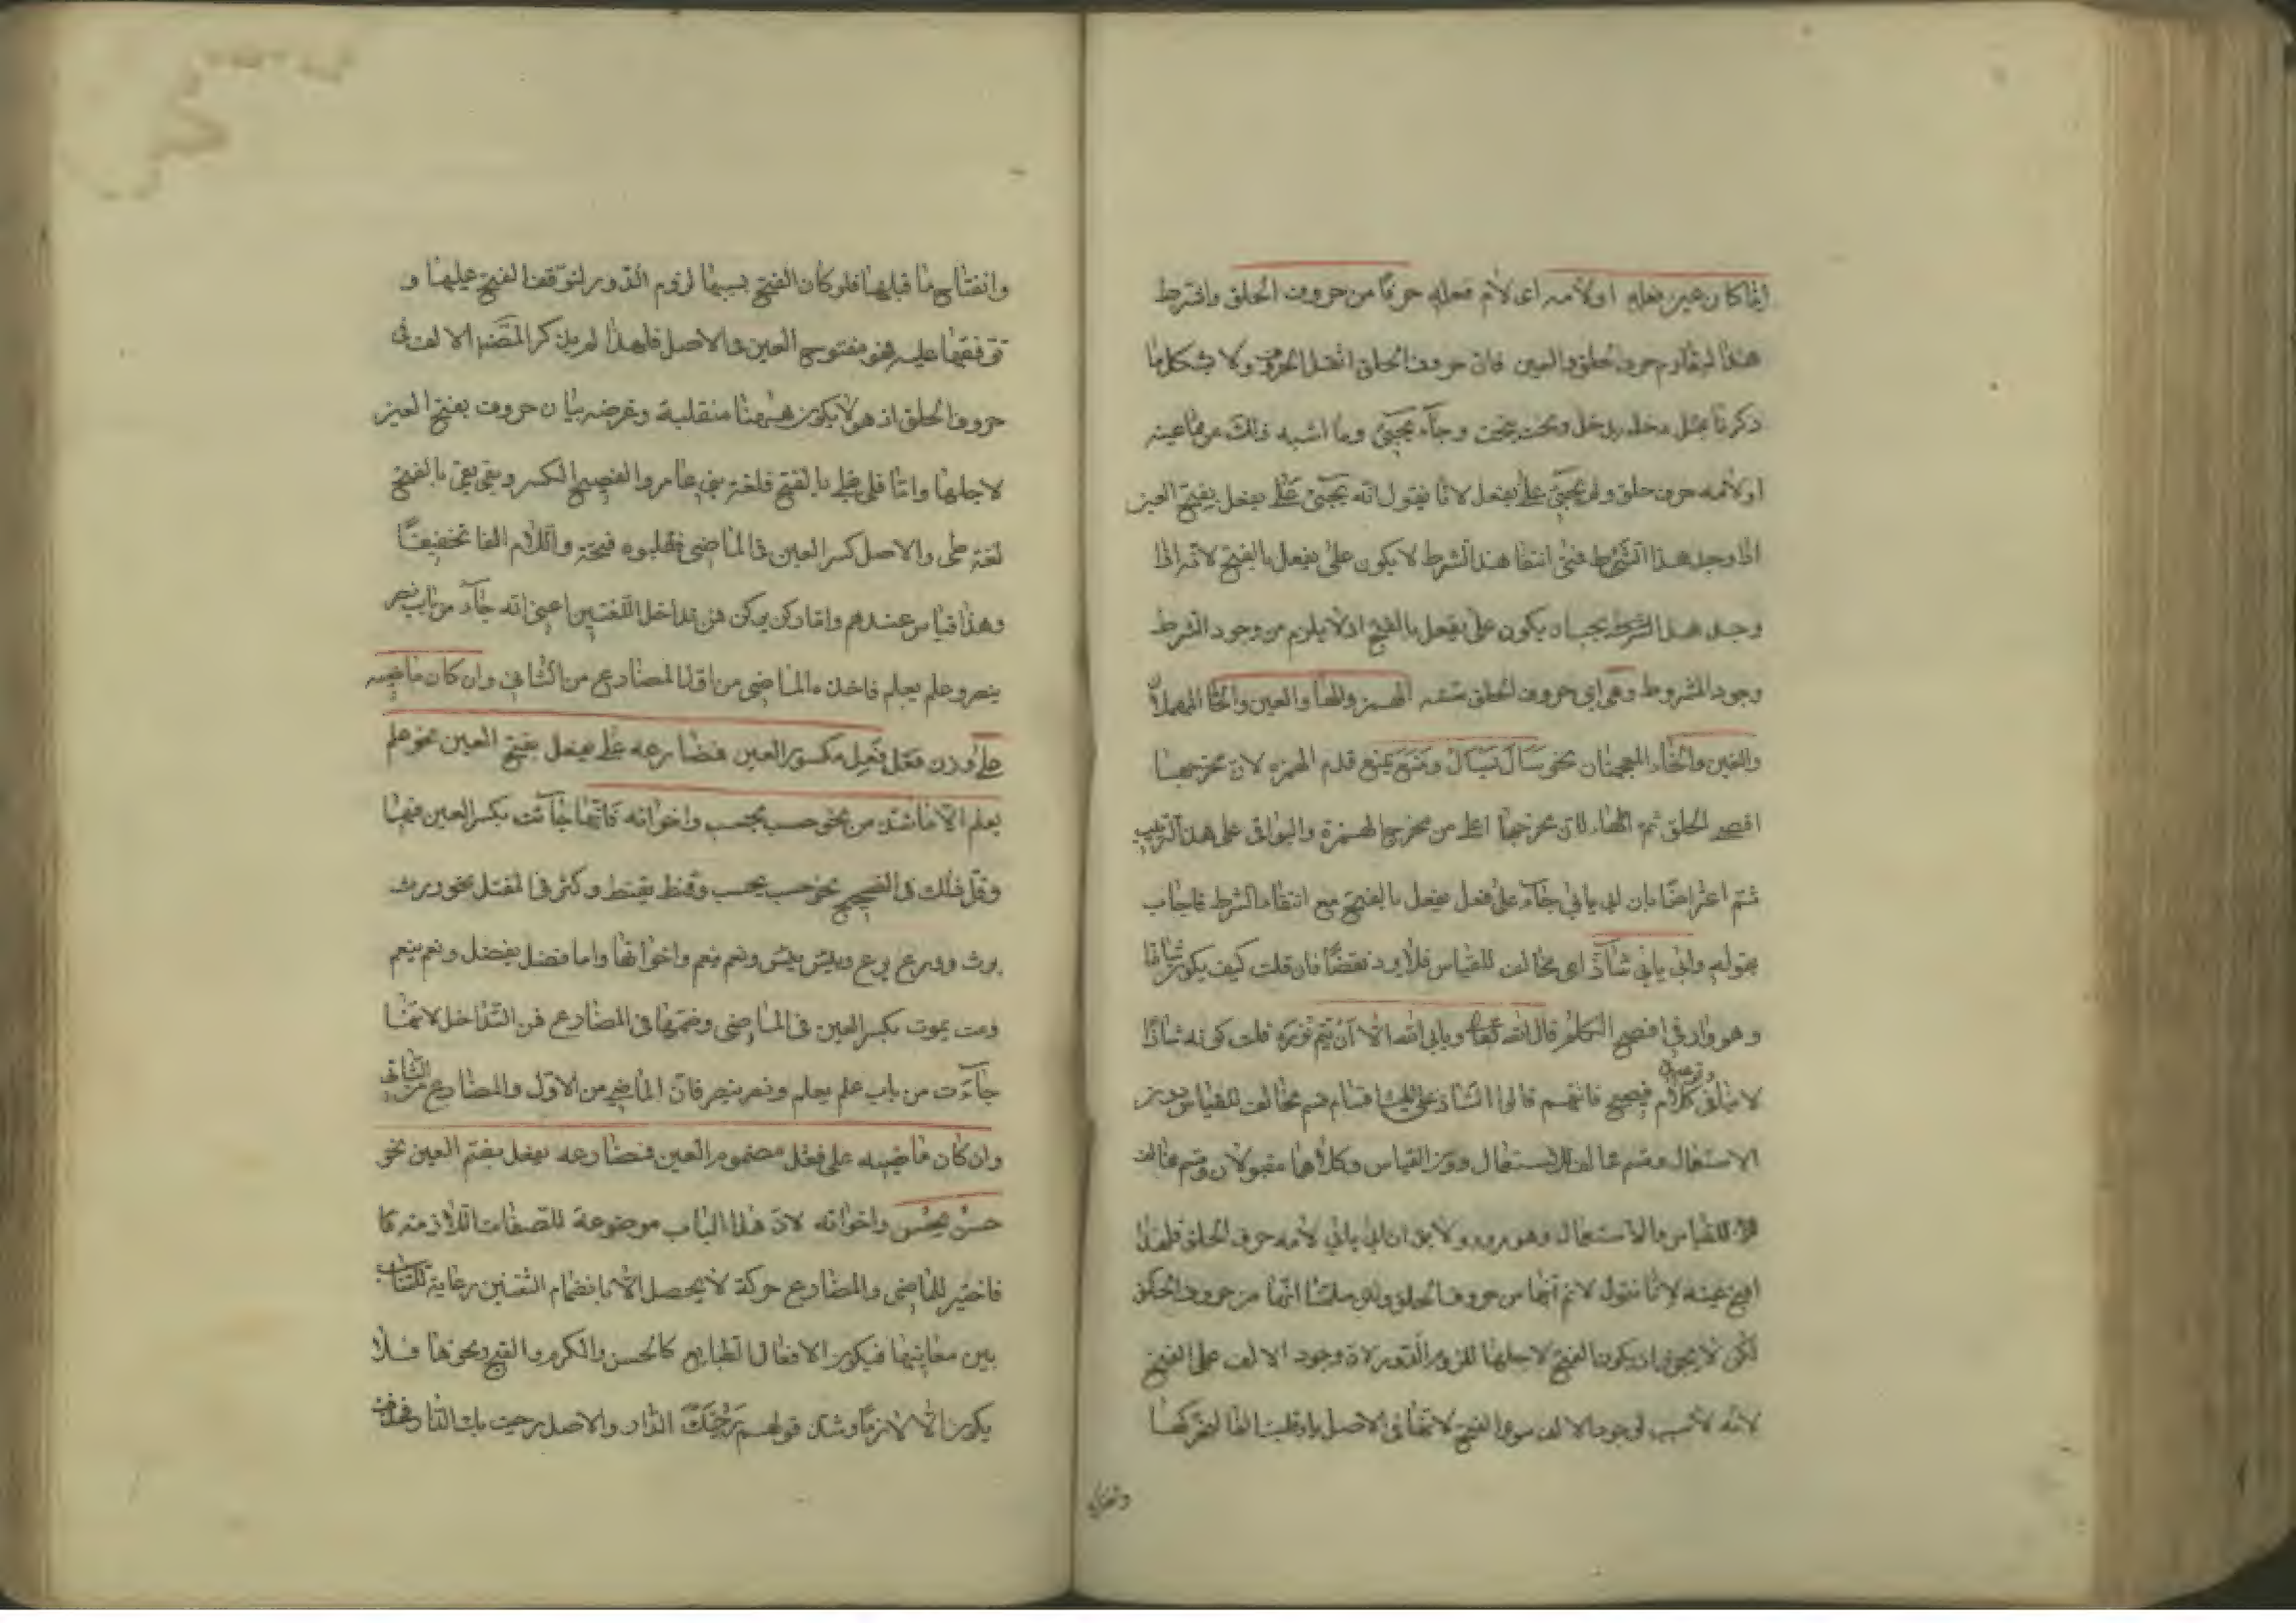 اذا كان عين فعله او لامه اى لام فعله حرفا من حروف الحلق واشترط
هذا ليقاوم حرف الحلق فتح العين فان حروف الحلق اثقل الحروف ولا يشكل ما
ذكرنا بمثل دخل يدخل ونحت ينحت وجاء يجيئ وما اشبه ذلك مما عينه
او لامه حرف حلق ولم يجئ على يفعل لانا نقول انه يجيئ على يفعل بفتح العين
اذا وجد هذا الشرط فمتى انتفا هذا الشرط لا يكون على يفعل بالفتح لا انه اذا
وجد هذا الشرط يجب ان يكون على يفعل بالفتح اذ لا يلزم من وجود الشرط
وجود المشروط وهى اى حروف الحلق ستة الهمزة والهاء والعين والحاء المهملتان
والغين والخاء المعجمتان نحو سأل يسأل ومنع يمنع قدم الهمزة لان مخرجها
اقصى الحلق ثم الهاء لان مخرجها اعلى من مخرج الهمزة والبواقى على هذا الترتيب
ثم اعتراضا بان ابى يابى جاء على فعل يفعل بالفتح مع انتفاء الشرط فاجاب
بقوله وابى يابى شاذ اى مخالف للقياس فلا يرد نقضا فان قلت كيف يكون شاذا
وهو وارد فى افصح الكلام قال الله تعا ويابى الله الا ان يتم نوره قلت كونه شاذا
لا ينافى وقوعه فى كلام فصيح فانهم قالوا الشاذ على ثلثة اقسام قسم مخالف للقياس دون
الاستعمال وقسم مخالف للاستعمال دون القياس وكلاهما مقبولان وقسم مخالف
للقياس والاستعمال وهو مردود ولا يق ان ابى يابى لامه حرف الحلق فلهذا
افتح عينه لانا نقول لا نم انها من حروف الحلق ولو سلمنا انها من حروف الحلق
لكن لا يجوز ان يكون الفتح لاجلها للزوم الدور لان وجود الالف على الفتح
لانه لا سبب لوجود الالف سوى الفتح لانها فى الاصل ياء قلبت الفا لتحركها
وانفتاح
وانفتاح ما قبلها فلو كان الفتح بسببها لزم الدور لتوقف الفتح عليها و
توقفها عليه فهو مفتوح العين فى الاصل فلهذا لم يذكر المصنف الالف فى
حروف الحلق اذ هو لا يكون ههنا منقلبة وغرضه بيان حروف يفتح العين
لاجلها واما قلى يقلى بالفتح فلغة بنى عامر والفصيح الكسر وبقى يبقى بالفتح
لغة طى والاصل كسر العين فى الماضى فقلبوه فتحة واللام الفا تخفيفا
وهذا قياس عندهم واما ركن يركن فمن تداخل اللغتين اعنى انه جاء من باب نصر
ينصر وعلم يعلم فاخذ الماضى من الاول والمضارع من الثانى وان كان ماضيه
على وزن فعل فَعِل مكسور العين فمضارعه على يفعل بفتح العين نحو علم
يعلم الا ما شذ من نحو حسب يحسب واخواته فانها جائت بكسر العين فيهما
وقل ذلك فى الصحيح نحو حسب يحسب وقنط يقنط وكثر فى المعتل نحو ورث
يرث وورع يرع ويئس ييئس ونعم ينعم واخواتها واما فضل يفضل ونعم ينعم
ومت يموت بكسر العين فى الماضى وضمها فى المضارع فمن التداخل لانها
جاءت من باب علم يعلم ونصر ينصر فان الماضى من الاول والمضارع من الثانى
وان كان ماضيه على فعل مضموم العين فمضارعه يفعل بضم العين نحو
حسن يحسن واخواته لان هذا الباب موضوعة للصفات اللازمة فا
فاختير للماضى والمضارع حركة لا يحصل الا بانضمام الشفتين رعاية للتناسب
بين معانيها فيكون الافعال الطبايع كالحسن والكرم والقبح ونحوها فلا
يكون الا لازما وشذ قولهم رحبتك الدار والاصل رحبت بك الدار فحذف